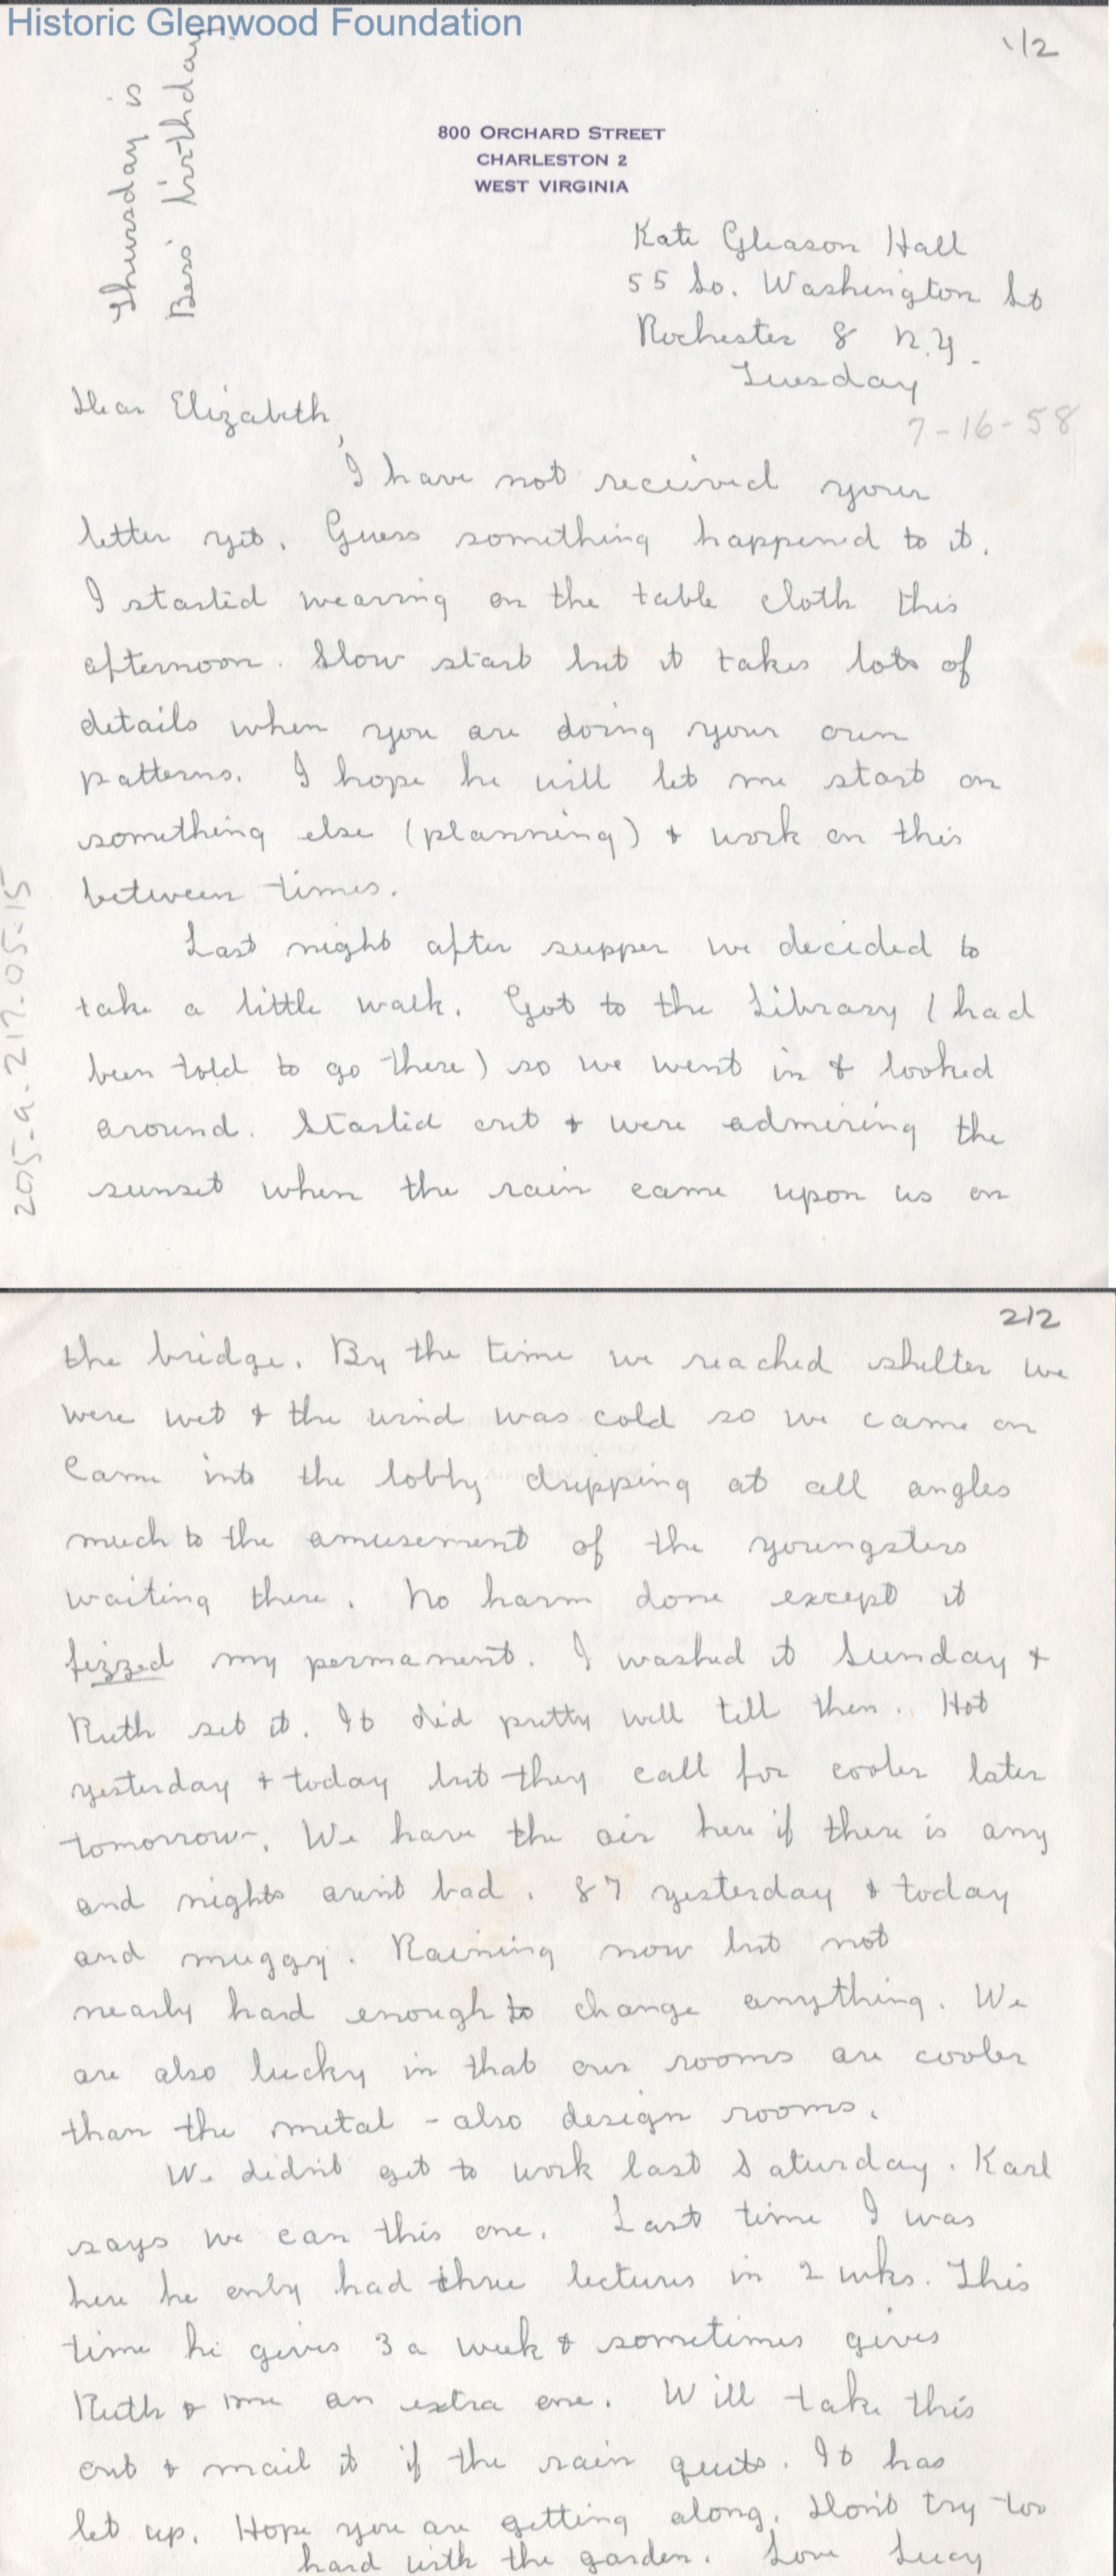 Historic Glenwood Foundation
1/2
Thursday is
Bess' birthday
800 ORCHARD STREET
CHARLESTON 2
WEST VIRGINIA
Kate Gleason Hall
55 So. Washington St
Rochester 8 N.Y.
Tuesday
7-16-58
Dear Elizabeth,
I have not received your
letter yet. Guess something happened to it.
I started weaving on the table cloth this
afternoon. Slow start but it takes lots of
details when you are doing your own
patterns. I hope he will let me start on
something else (planning) & work on this
between times.
Last night after supper we decided to
take a little walk. Got to the Library (had
been told to go there) so we went in & looked
around. Started out & were admiring the
sunset when the rain came upon us on
2015-9.217.05.15
2/2
the bridge. By the time we reached shelter we
were wet & the wind was cold so we came on
Came into the lobby dripping at all angles
much to the amusement of the youngsters
waiting there. No harm done except it
fizzed my permanent. I washed it Sunday &
Ruth set it. It did pretty well till then. Hot
yesterday & today but they call for cooler later
tomorrow. We have the air here if there is any
and nights aren't bad. 87 yesterday & today
and muggy. Raining now but not
nearly hard enough to change anything. We
are also lucky in that our rooms are cooler
than the metal - also design rooms.
We didn't get to work last Saturday. Karl
says we can this one. Last time I was
here he only had three lectures in 2 wks. This
time he gives 3 a week & sometimes gives
Ruth & me an extra one. Will take this
out & mail it if the rain quits. It has
let up. Hope you are getting along. Don't try too
hard with the garden. Love Lucy